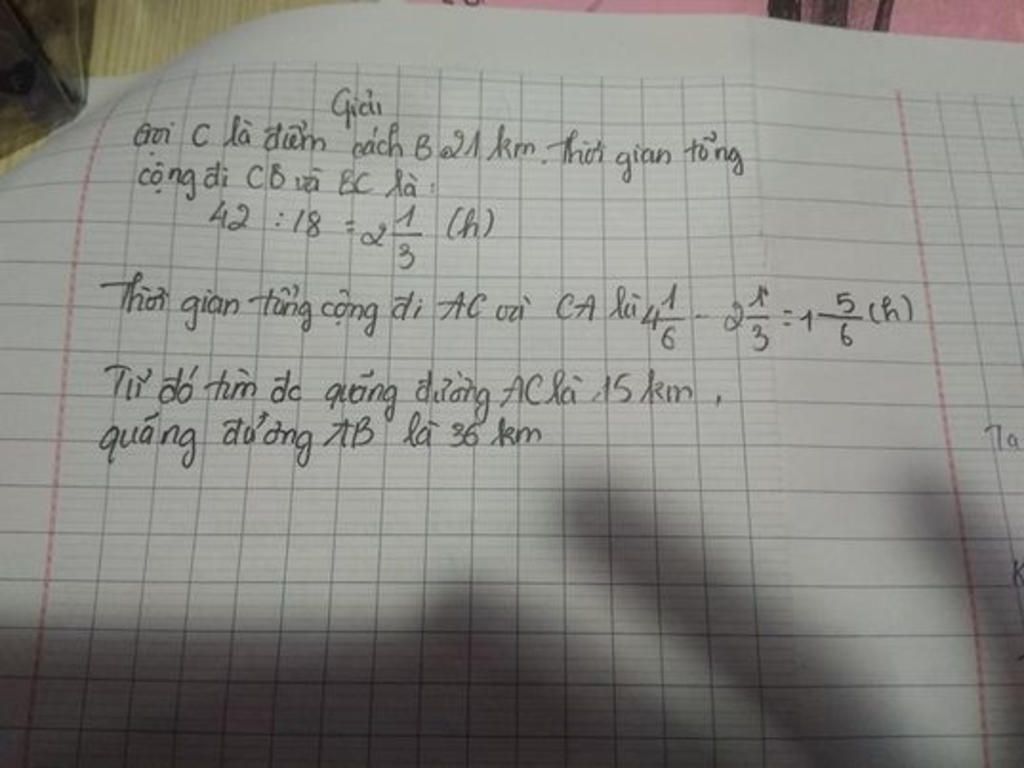 Giải
Gọi C là điểm cách B 21 km. Thời gian tổng
cộng đi CB và BC là:
42 : 18 = 2 1/3 (h)
Thời gian tổng cộng đi AC và CA là 4 1/6 - 2 1/3 = 1 5/6 (h)
Từ đó tìm dc quãng đường AC là 15 km,
quãng đường AB là 36 km
Ta